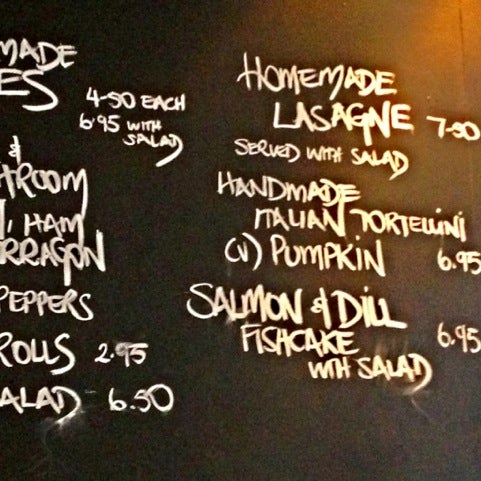 MADE
ES 4-50 EACH
6.95 WITH
SALAD
&
ROOM
HAM
RRAGON
PEPPERS
ROLLS 2.95
ALAD 6.50
HOMEMADE
LASAGNE 7-50
SERVED WITH SALAD
HANDMADE
ITALIAN TORTELLINI
(V) PUMPKIN 6.95
SALMON & DILL
FISHCAKE 6.95
WITH SALAD